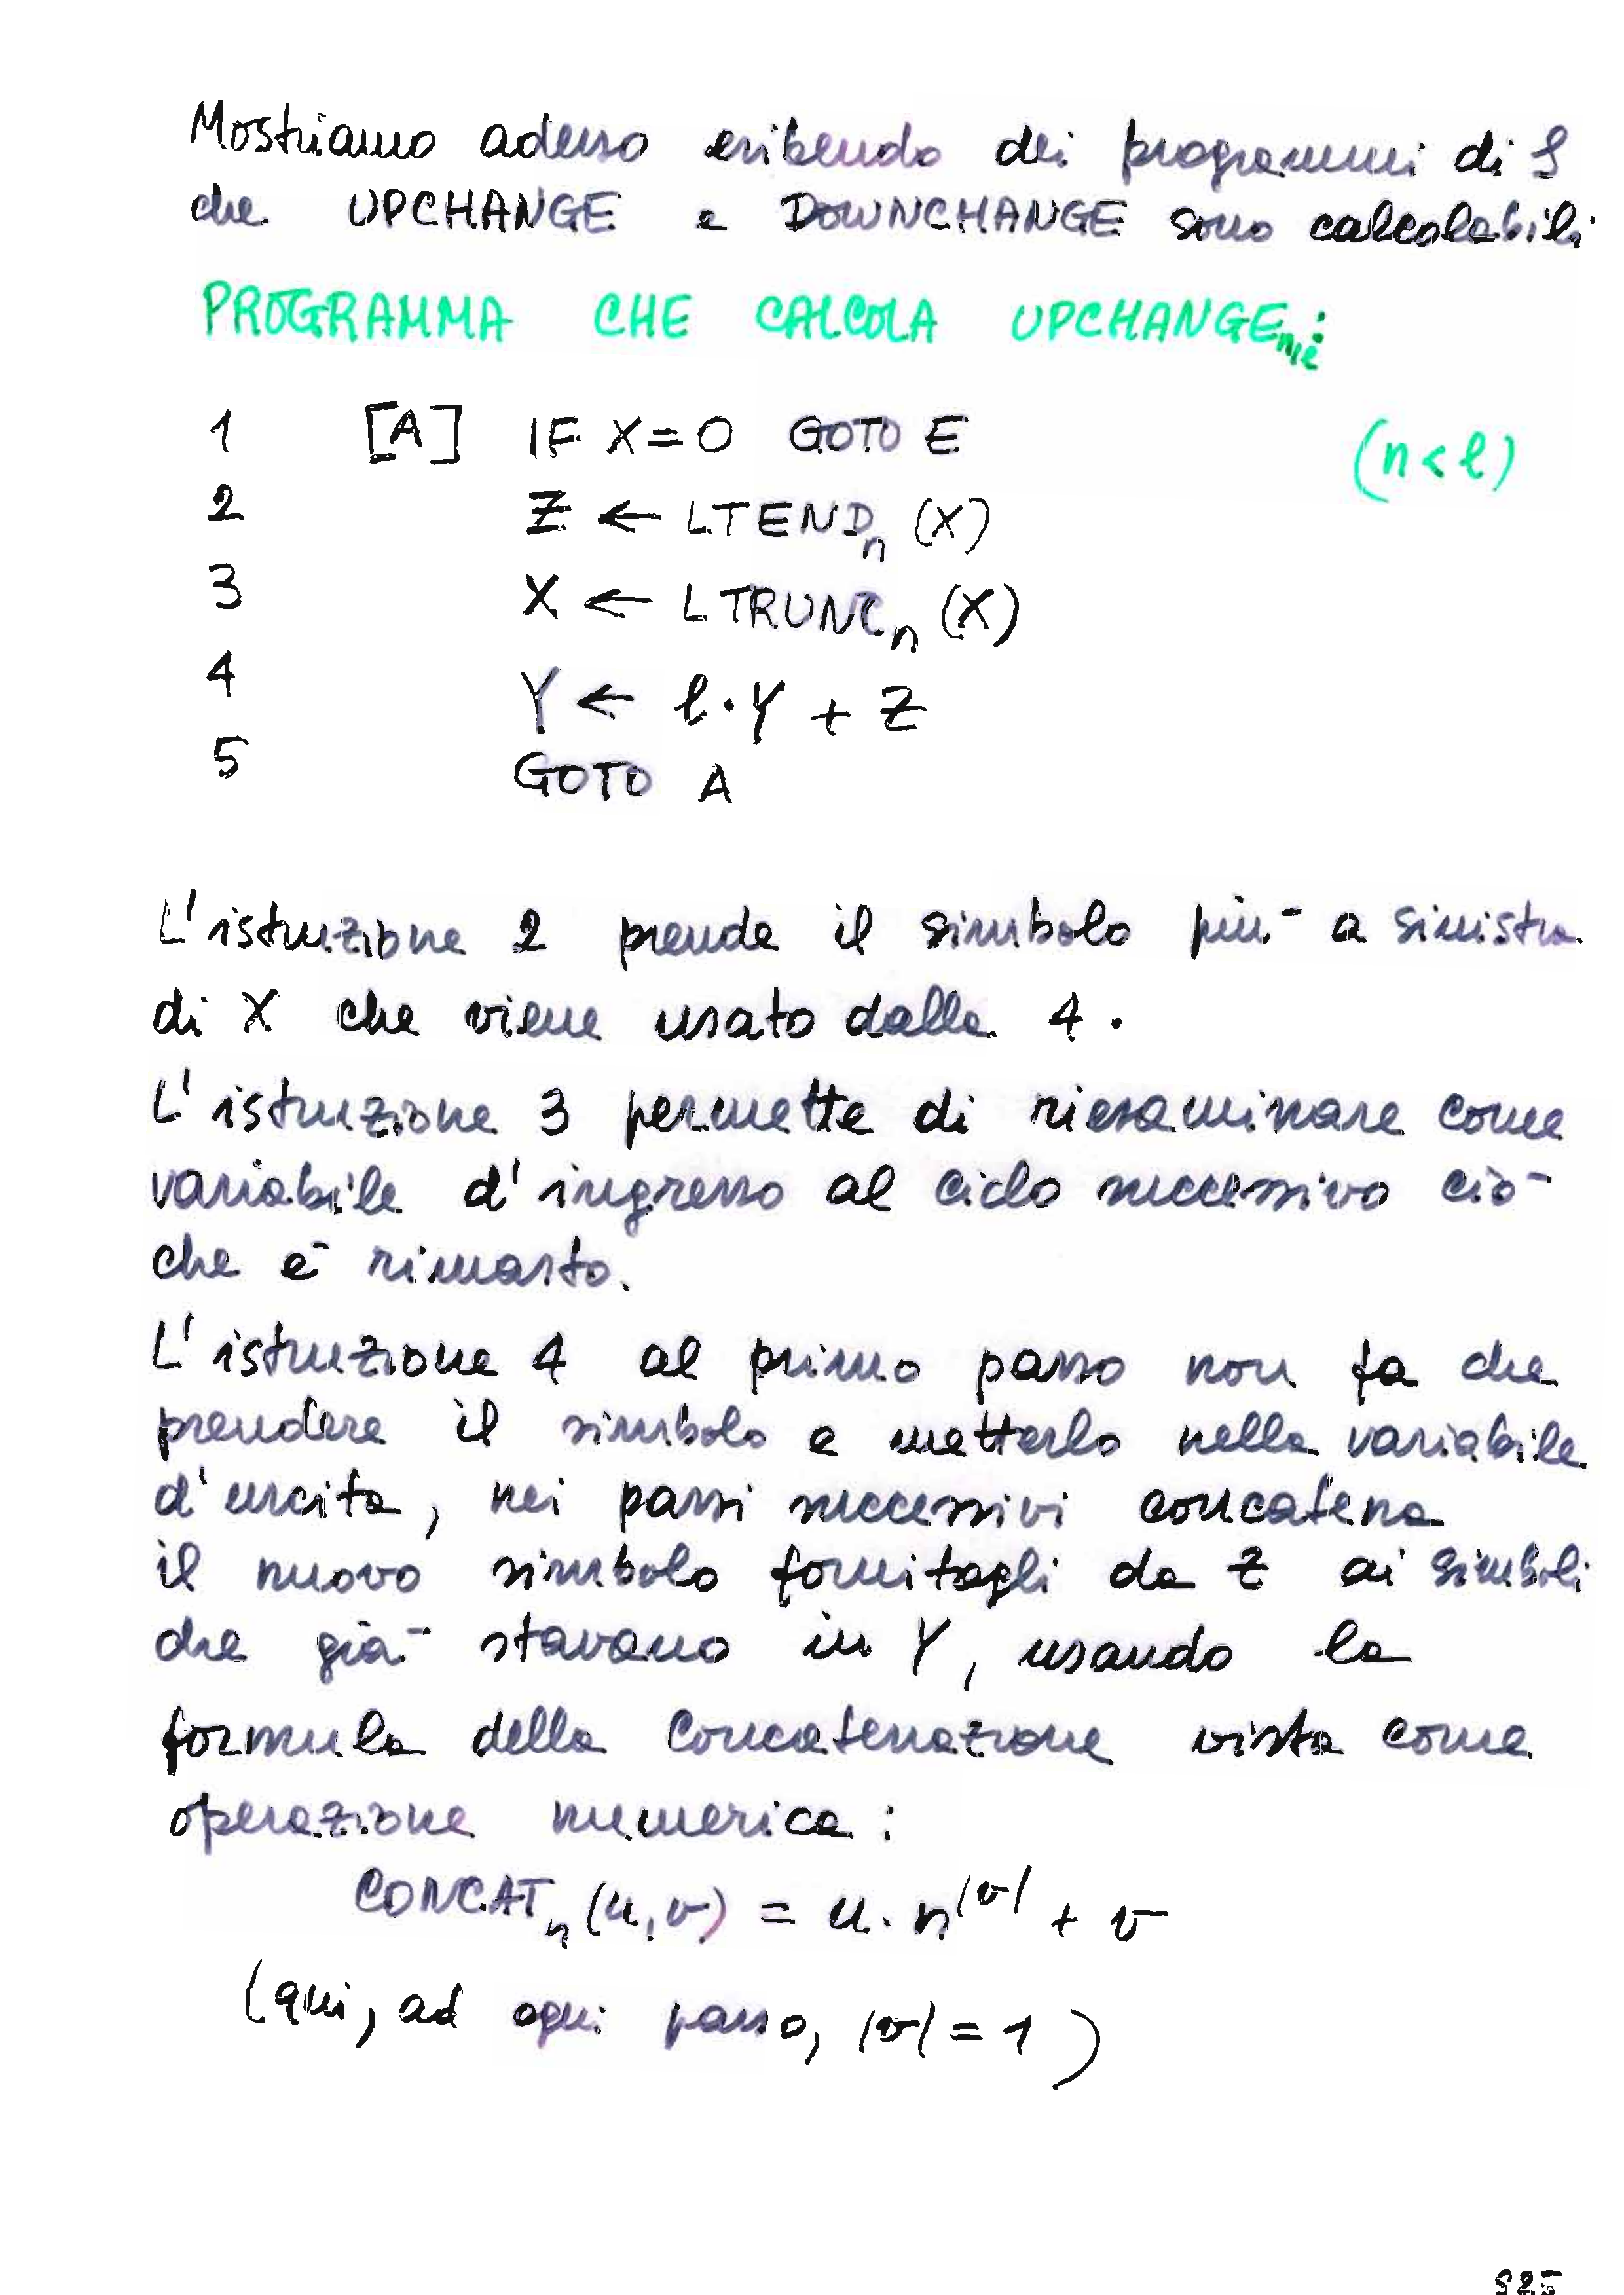 Mostriamo adesso esibendo dei programmi di S
che UPCHANGE e DOWNCHANGE sono calcolabili
PROGRAMMA CHE CALCOLA UPCHANGE n,l :
1 [A] IF X=0 GOTO E (n<l)
2 Z ← LTEND n (X)
3 X ← LTRUNC n (X)
4 Y ← l·Y + Z
5 GOTO A
L'istruzione 2 prende il simbolo più a sinistra
di X che viene usato dalla 4.
L'istruzione 3 permette di riesaminare come
variabile d'ingresso al ciclo successivo ciò
che è rimasto.
L'istruzione 4 al primo passo non fa che
prendere il simbolo e metterlo nella variabile
d'uscita, nei passi successivi concatena
il nuovo simbolo fornitogli da Z ai simboli
che già stavano in Y, usando la
formula della concatenazione vista come
operazione numerica:
CONCAT n (u,v) = u·n^|v| + v
(qui, ad ogni passo, |v| = 1)